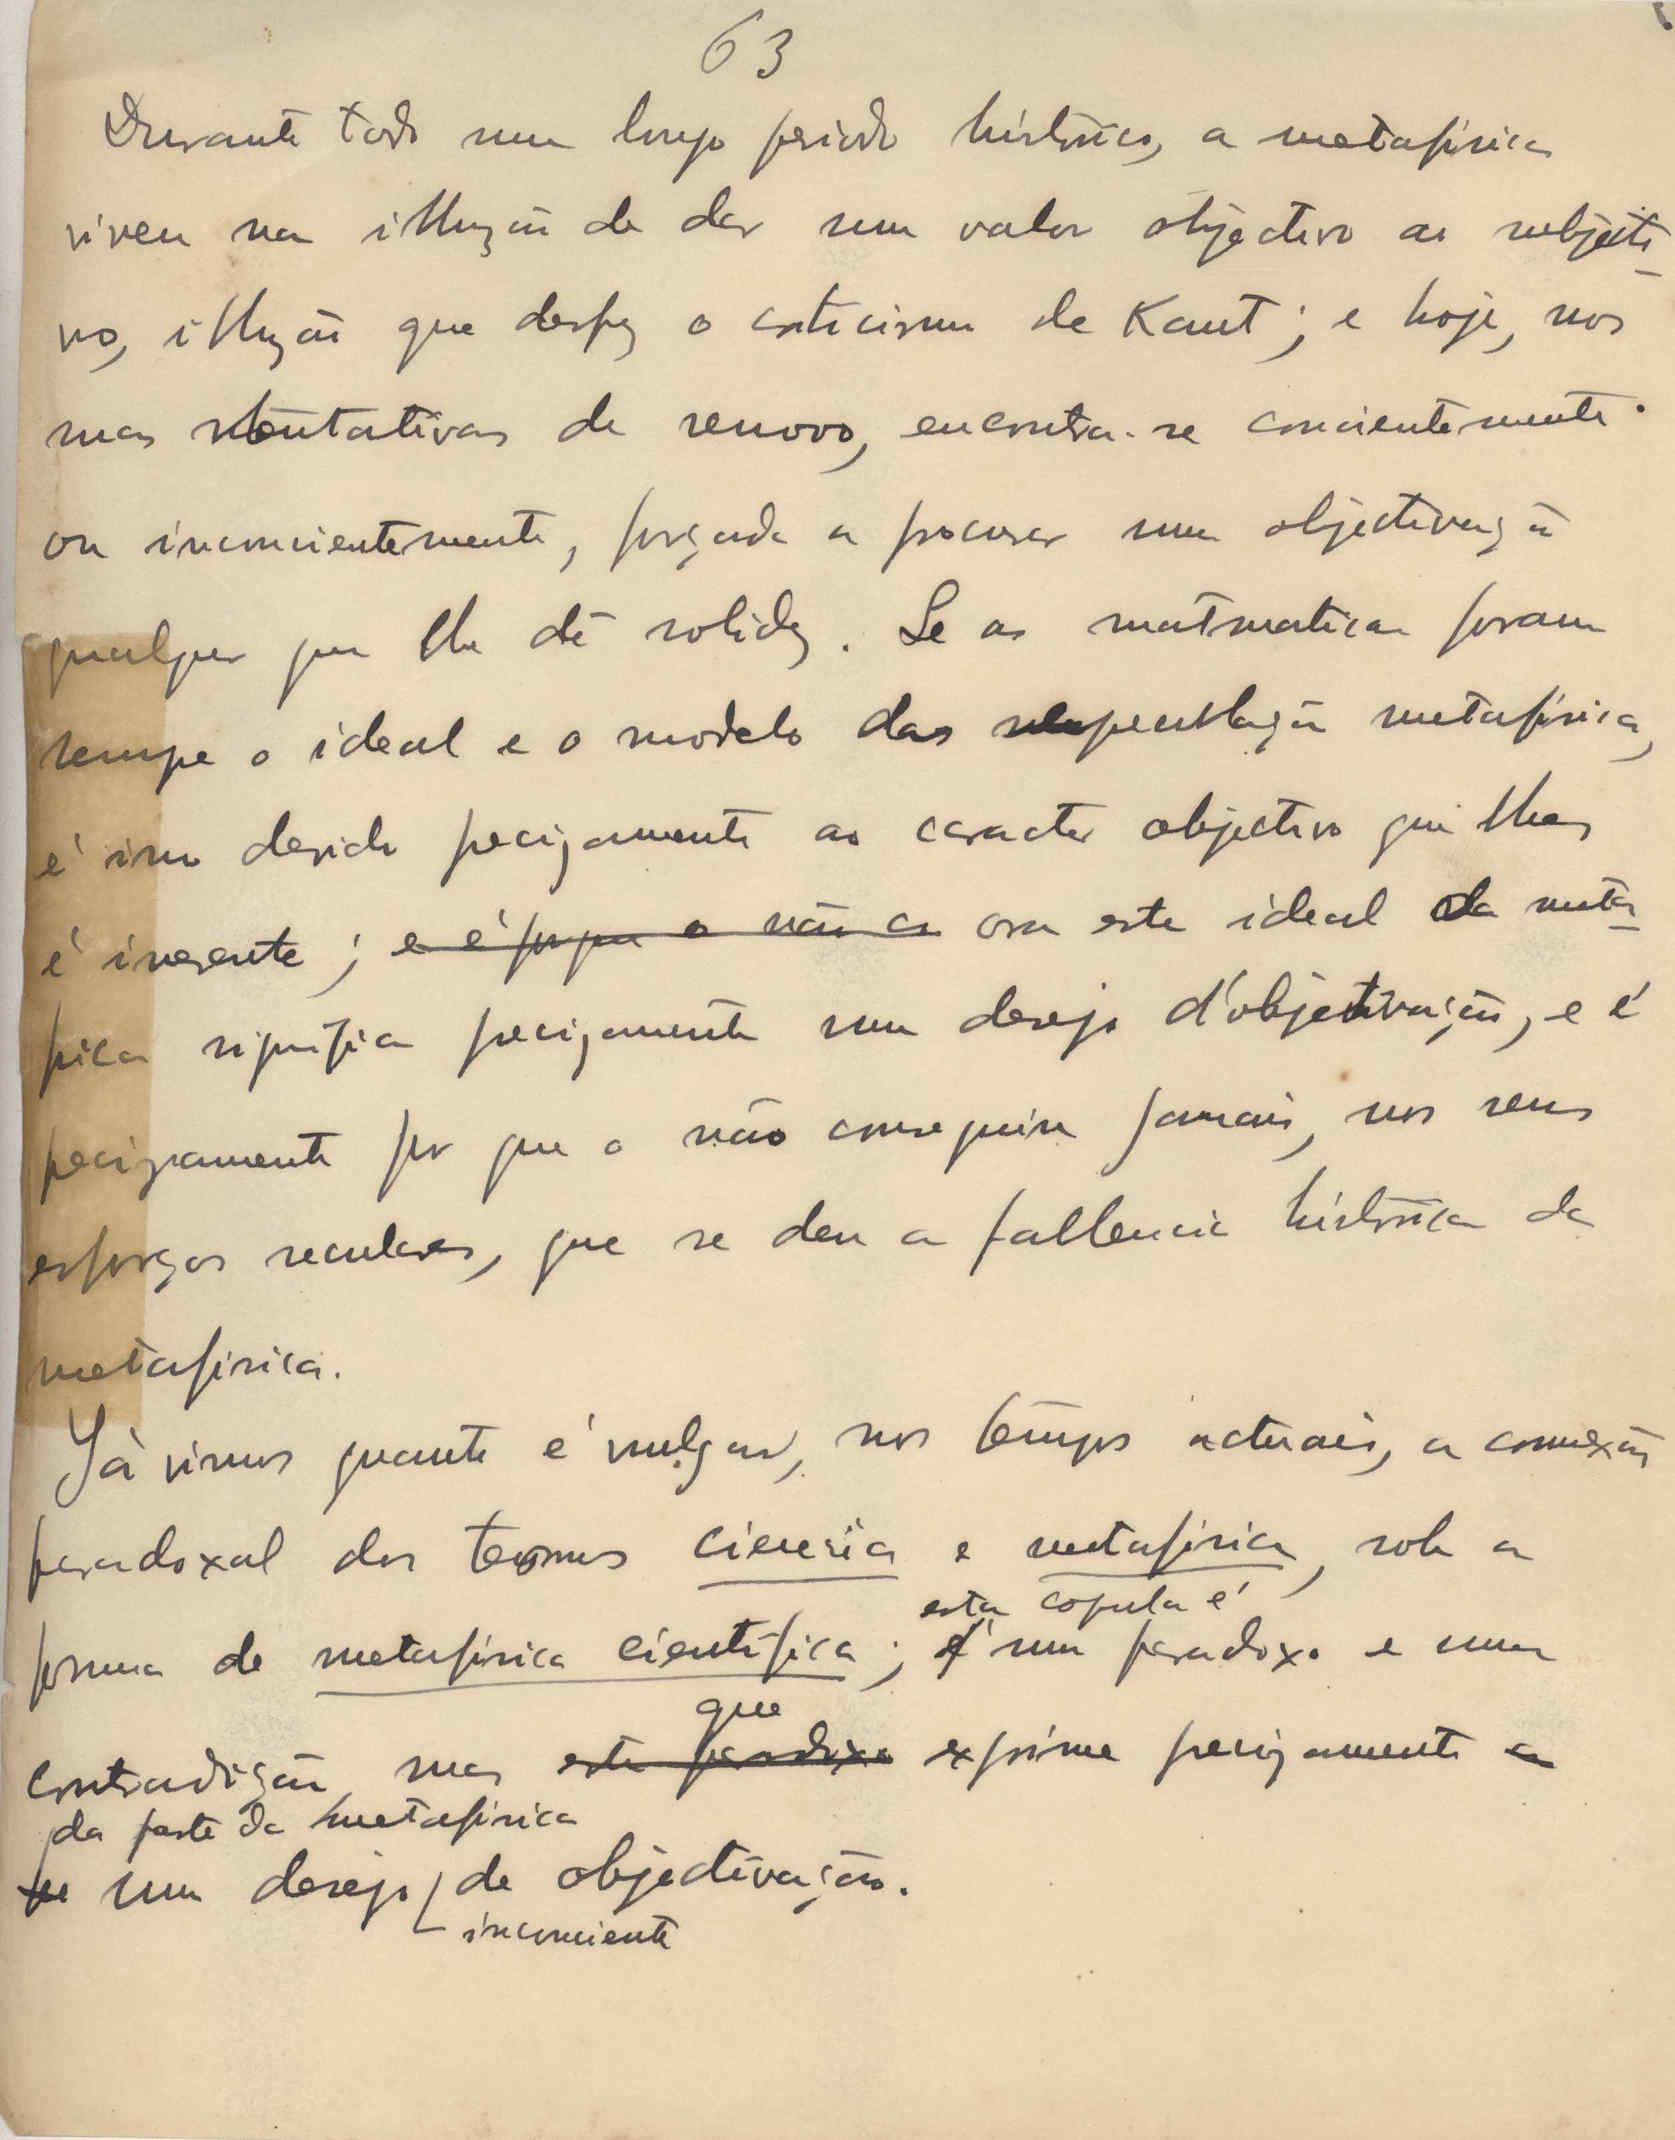 63
Durante todo um longo periodo historico, a metafisica
viveu na illuzão de dar um valor objectivo ao subjecti-
vo, illuzão que desfez o criticismo de Kant; e hoje, nos
mas tentativas de renovo, encontra-se concientemente
ou inconcientemente, forçada a procurar uma objectivação
qualquer que lhe dê solidez. Se as matematicas foram
sempre o ideal e o modelo da especulação metafisica,
é isso devido precizamente ao caracter objectivo que lhes
é inerente; e é porque o não co ora este ideal da meta-
fisica significa precizamente um desejo d'objectivação, e é
precizamente por que o não conseguiu jamais, nos seus
esforços seculares, que se deu a fallencia historica da
metafisica.
Já vimos quanto é vulgar, nos tempos actuais, a connexão
paradoxal dos termos ciencia e metafisica, sob a
esta copula é
forma de metafisica cientifica; é um paradoxo e uma
que
contradição, mas este paradoxo exprime precizamente a
da parte da metafisica
um desejo de objectivação.
inconciente